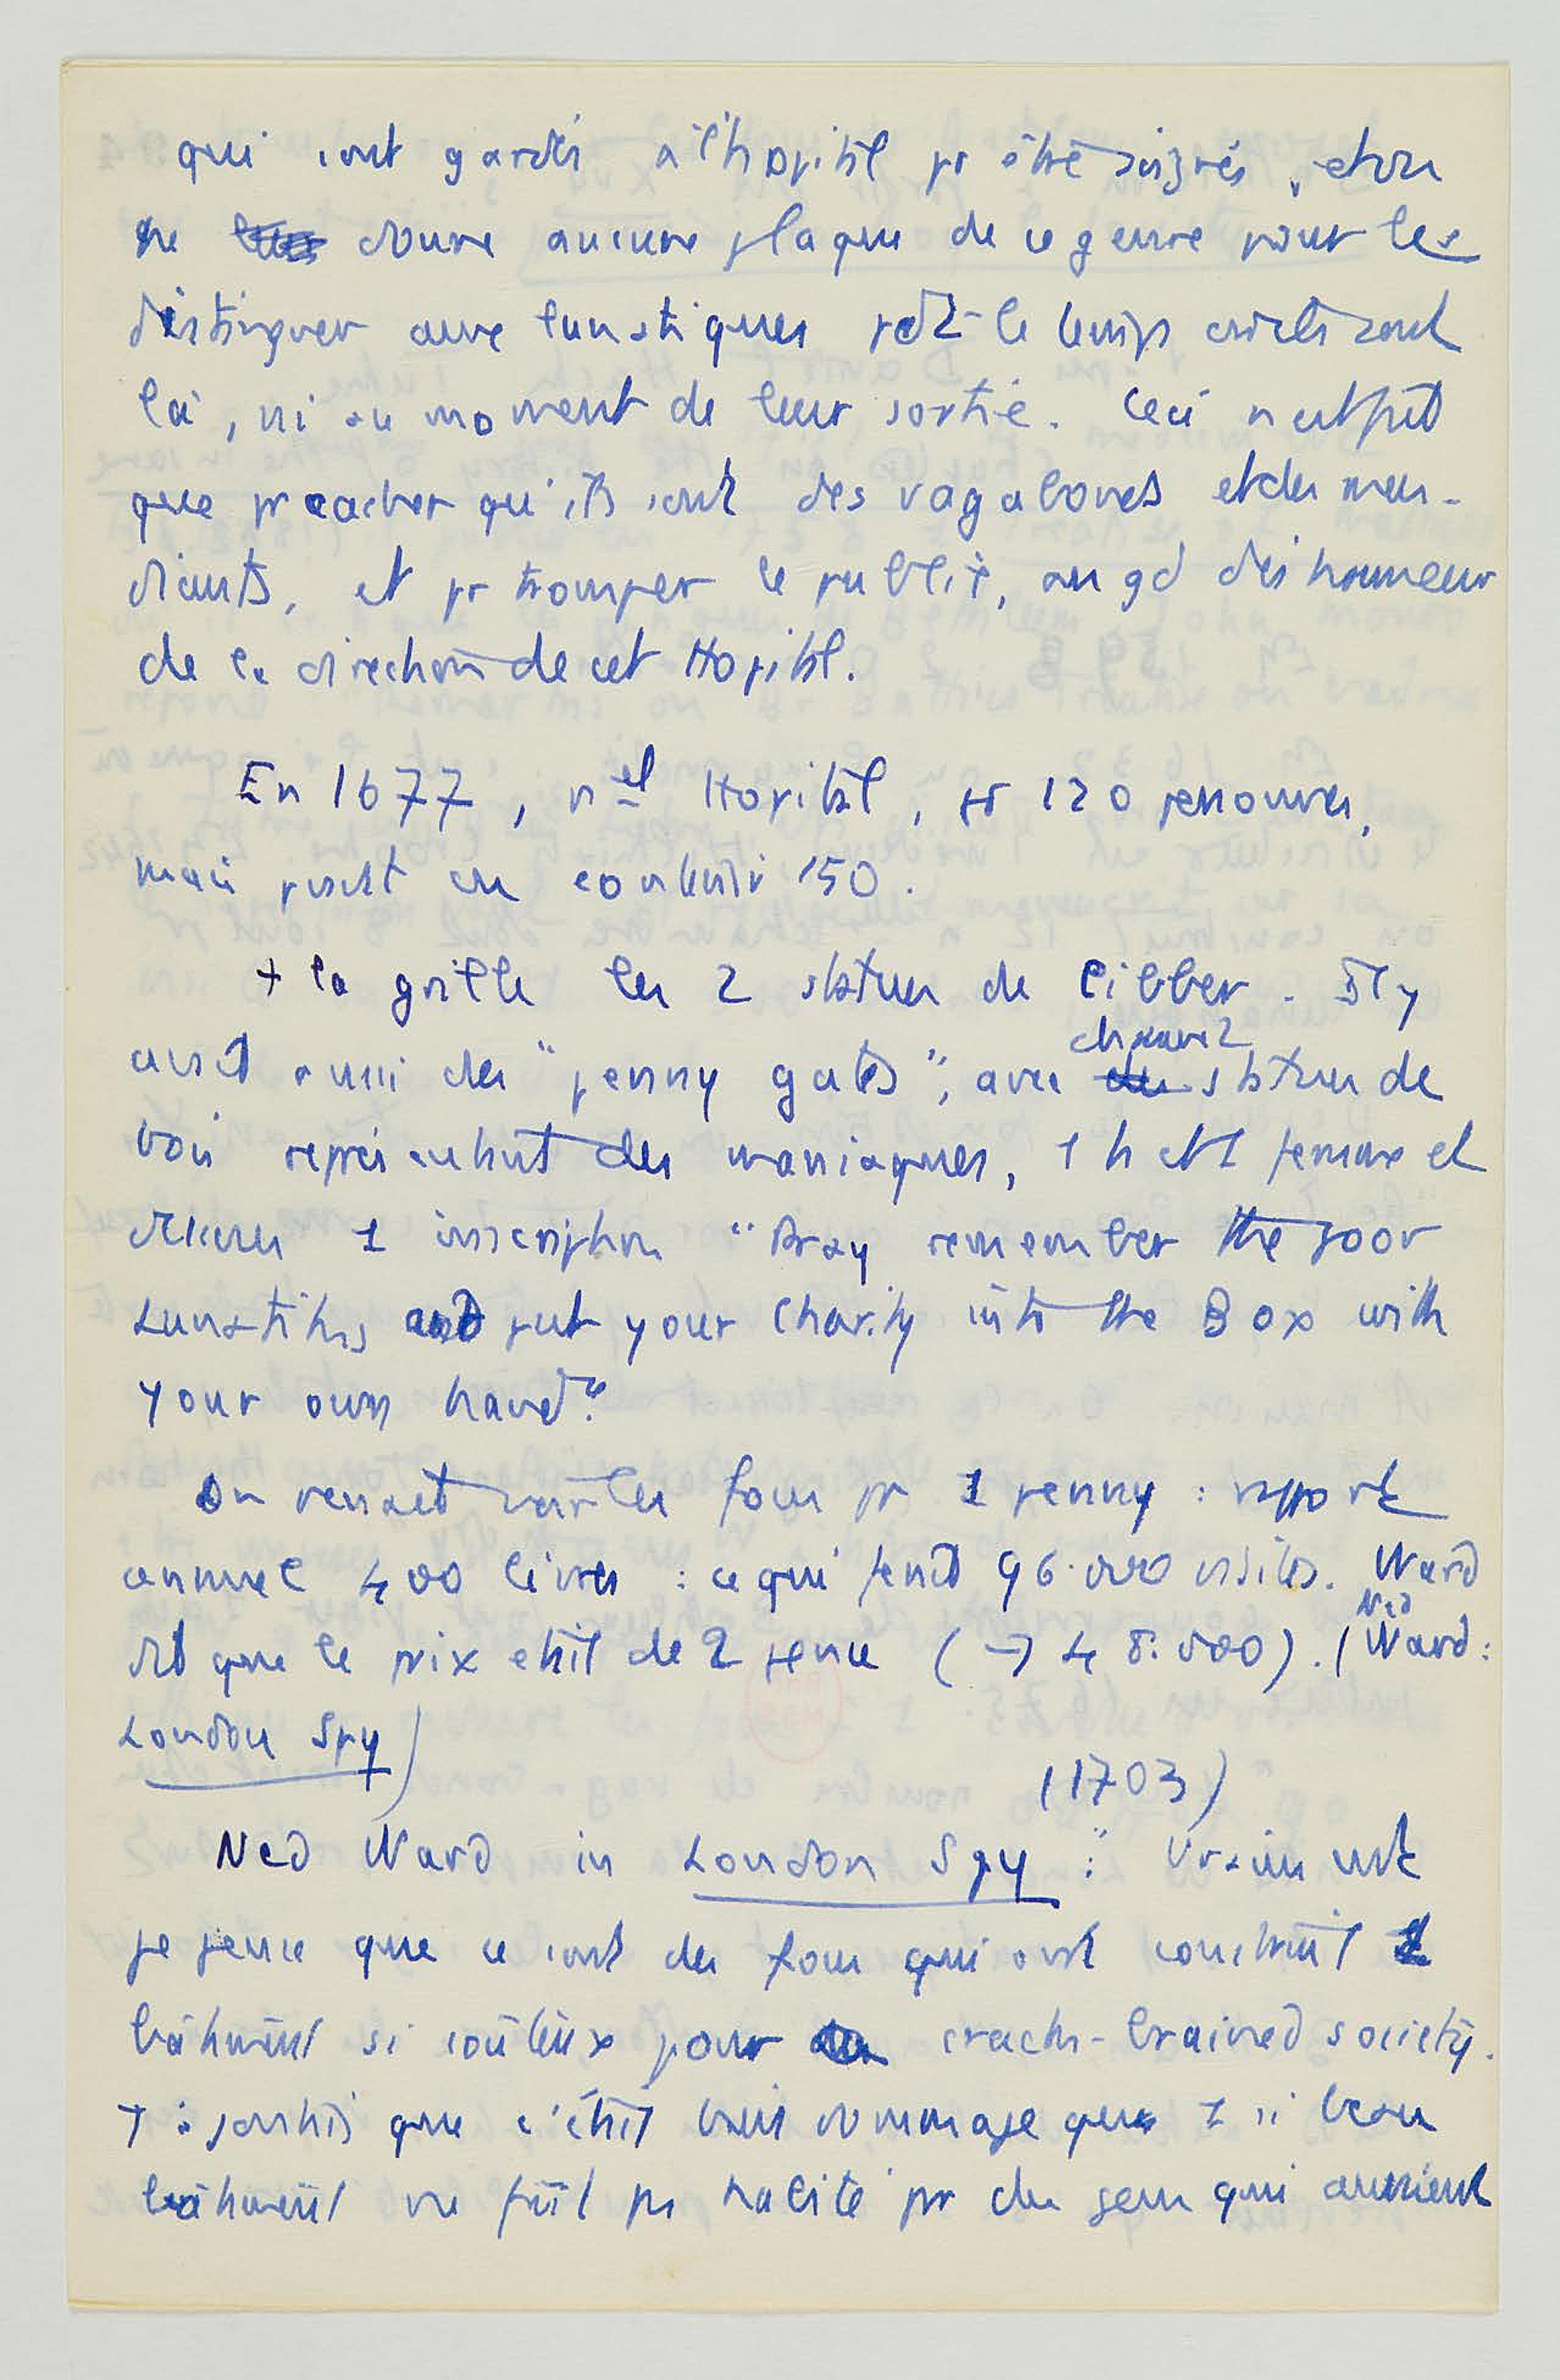 qui sont gardés à l'hôpital pr être soignés, et on
ne donne aucune plaque de ce genre pour les
distinguer comme lunatiques pdt le temps où ils sont
là, ni au moment de leur sortie. Ceci n'est fait
que pr cacher qu'ils sont des vagabonds et des men-
diants, et pr tromper le public, au gd déshonneur
de la direction de cet Hopital.
En 1677, nel Hopital, pr 120 personnes,
mais peut en contenir 150.
+ la grille les 2 statues de Cibber. Il y
avait aussi des "penny gates", avec chacune 2 statues de
bois représentant des maniaques, 1 h et 1 femme et
dessus 1 inscription "Pray remember the poor
Lunatiks and put your Charity into the Box with
your own hand".
On venait voir les fous pr 1 penny : rapport
annuel 400 livres : ce qui ferait 96.000 visites. Ward
dit que le prix était de 2 pence (→ 48.000). (Ned Ward :
London Spy)
(1703)
Ned Ward in London Spy : "Vraiment
je pense que ce sont des fous qui ont construit 1
bâtiment si coûteux pour crack-brained society.
+ : que c'était bien dommage que 1 si beau
bâtiment ne fût pas habité pr des gens qui auraient